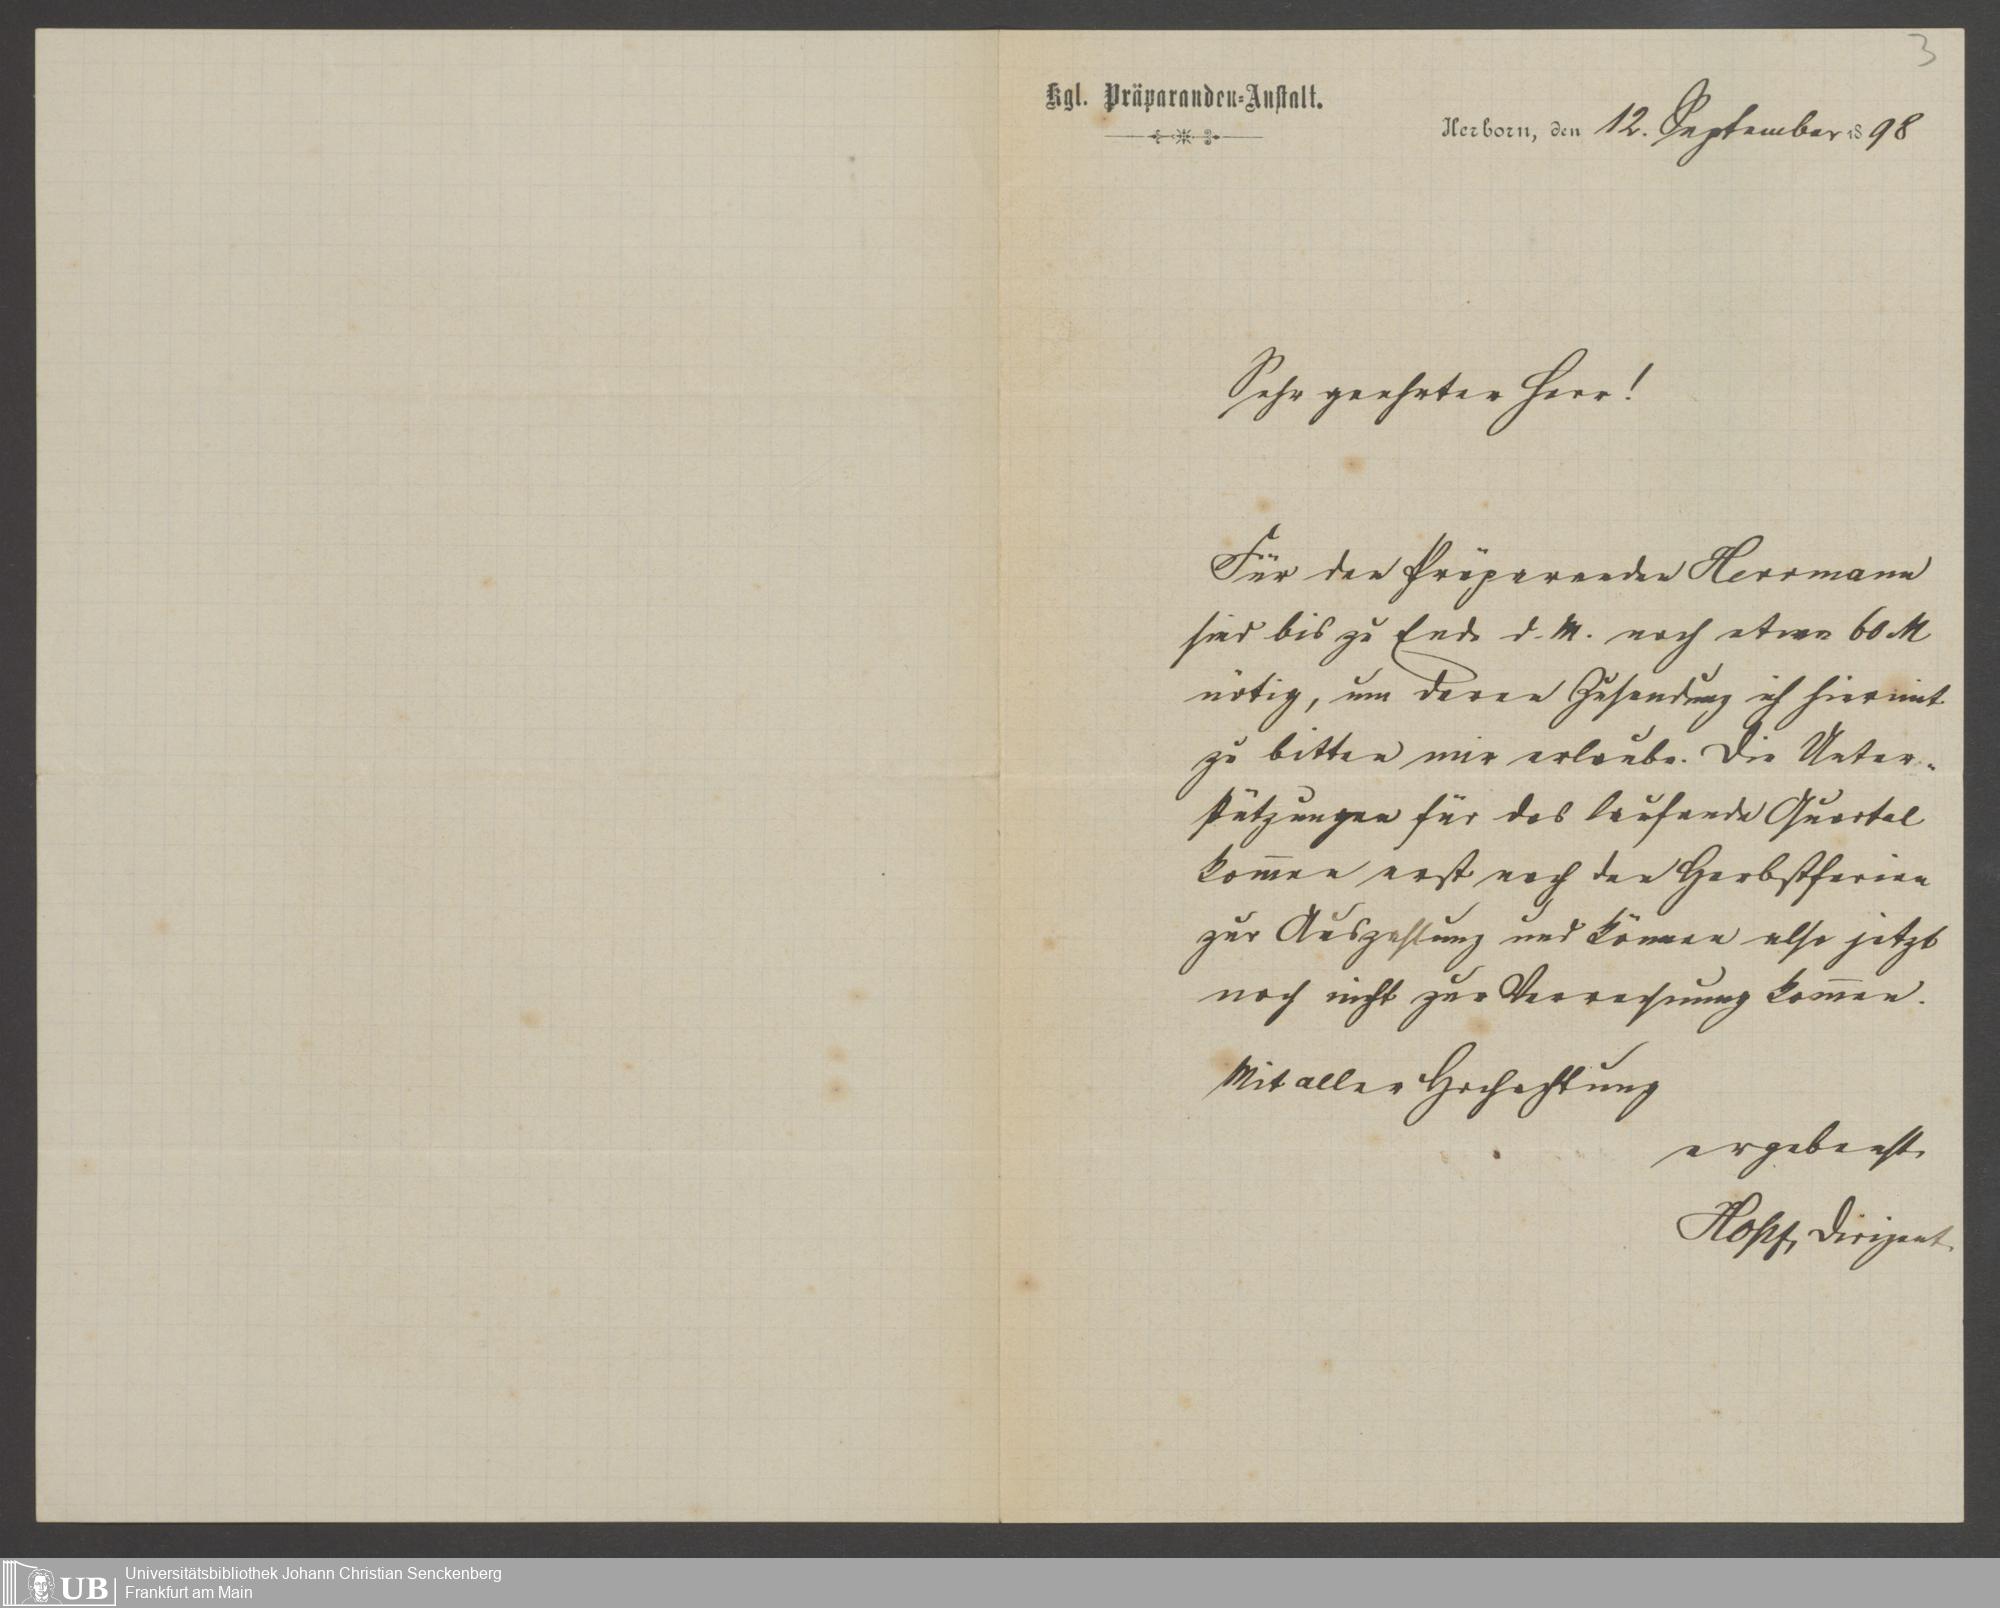 3
Kgl. Präparanden-Anstalt.
Herborn, den 12. September 1898
Sehr geehrter Herr!
Für den Präparanden Herrmann
sind bis zu Ende d. M. noch etwa 60 M
nötig, um deren Zusendung ich hiermit
zu bitten mir erlaube. Die Unter-
stützungen für das laufende Quartal
kom̄en erst nach den Herbstferien
zur Auszahlung und können also jetzt
noch nicht zur Verrechnung kom̄en.
Mit aller Hochachtung
ergebenst
Hopf, Dirigent.
UB
Universitätsbibliothek Johann Christian Senckenberg
Frankfurt am Main